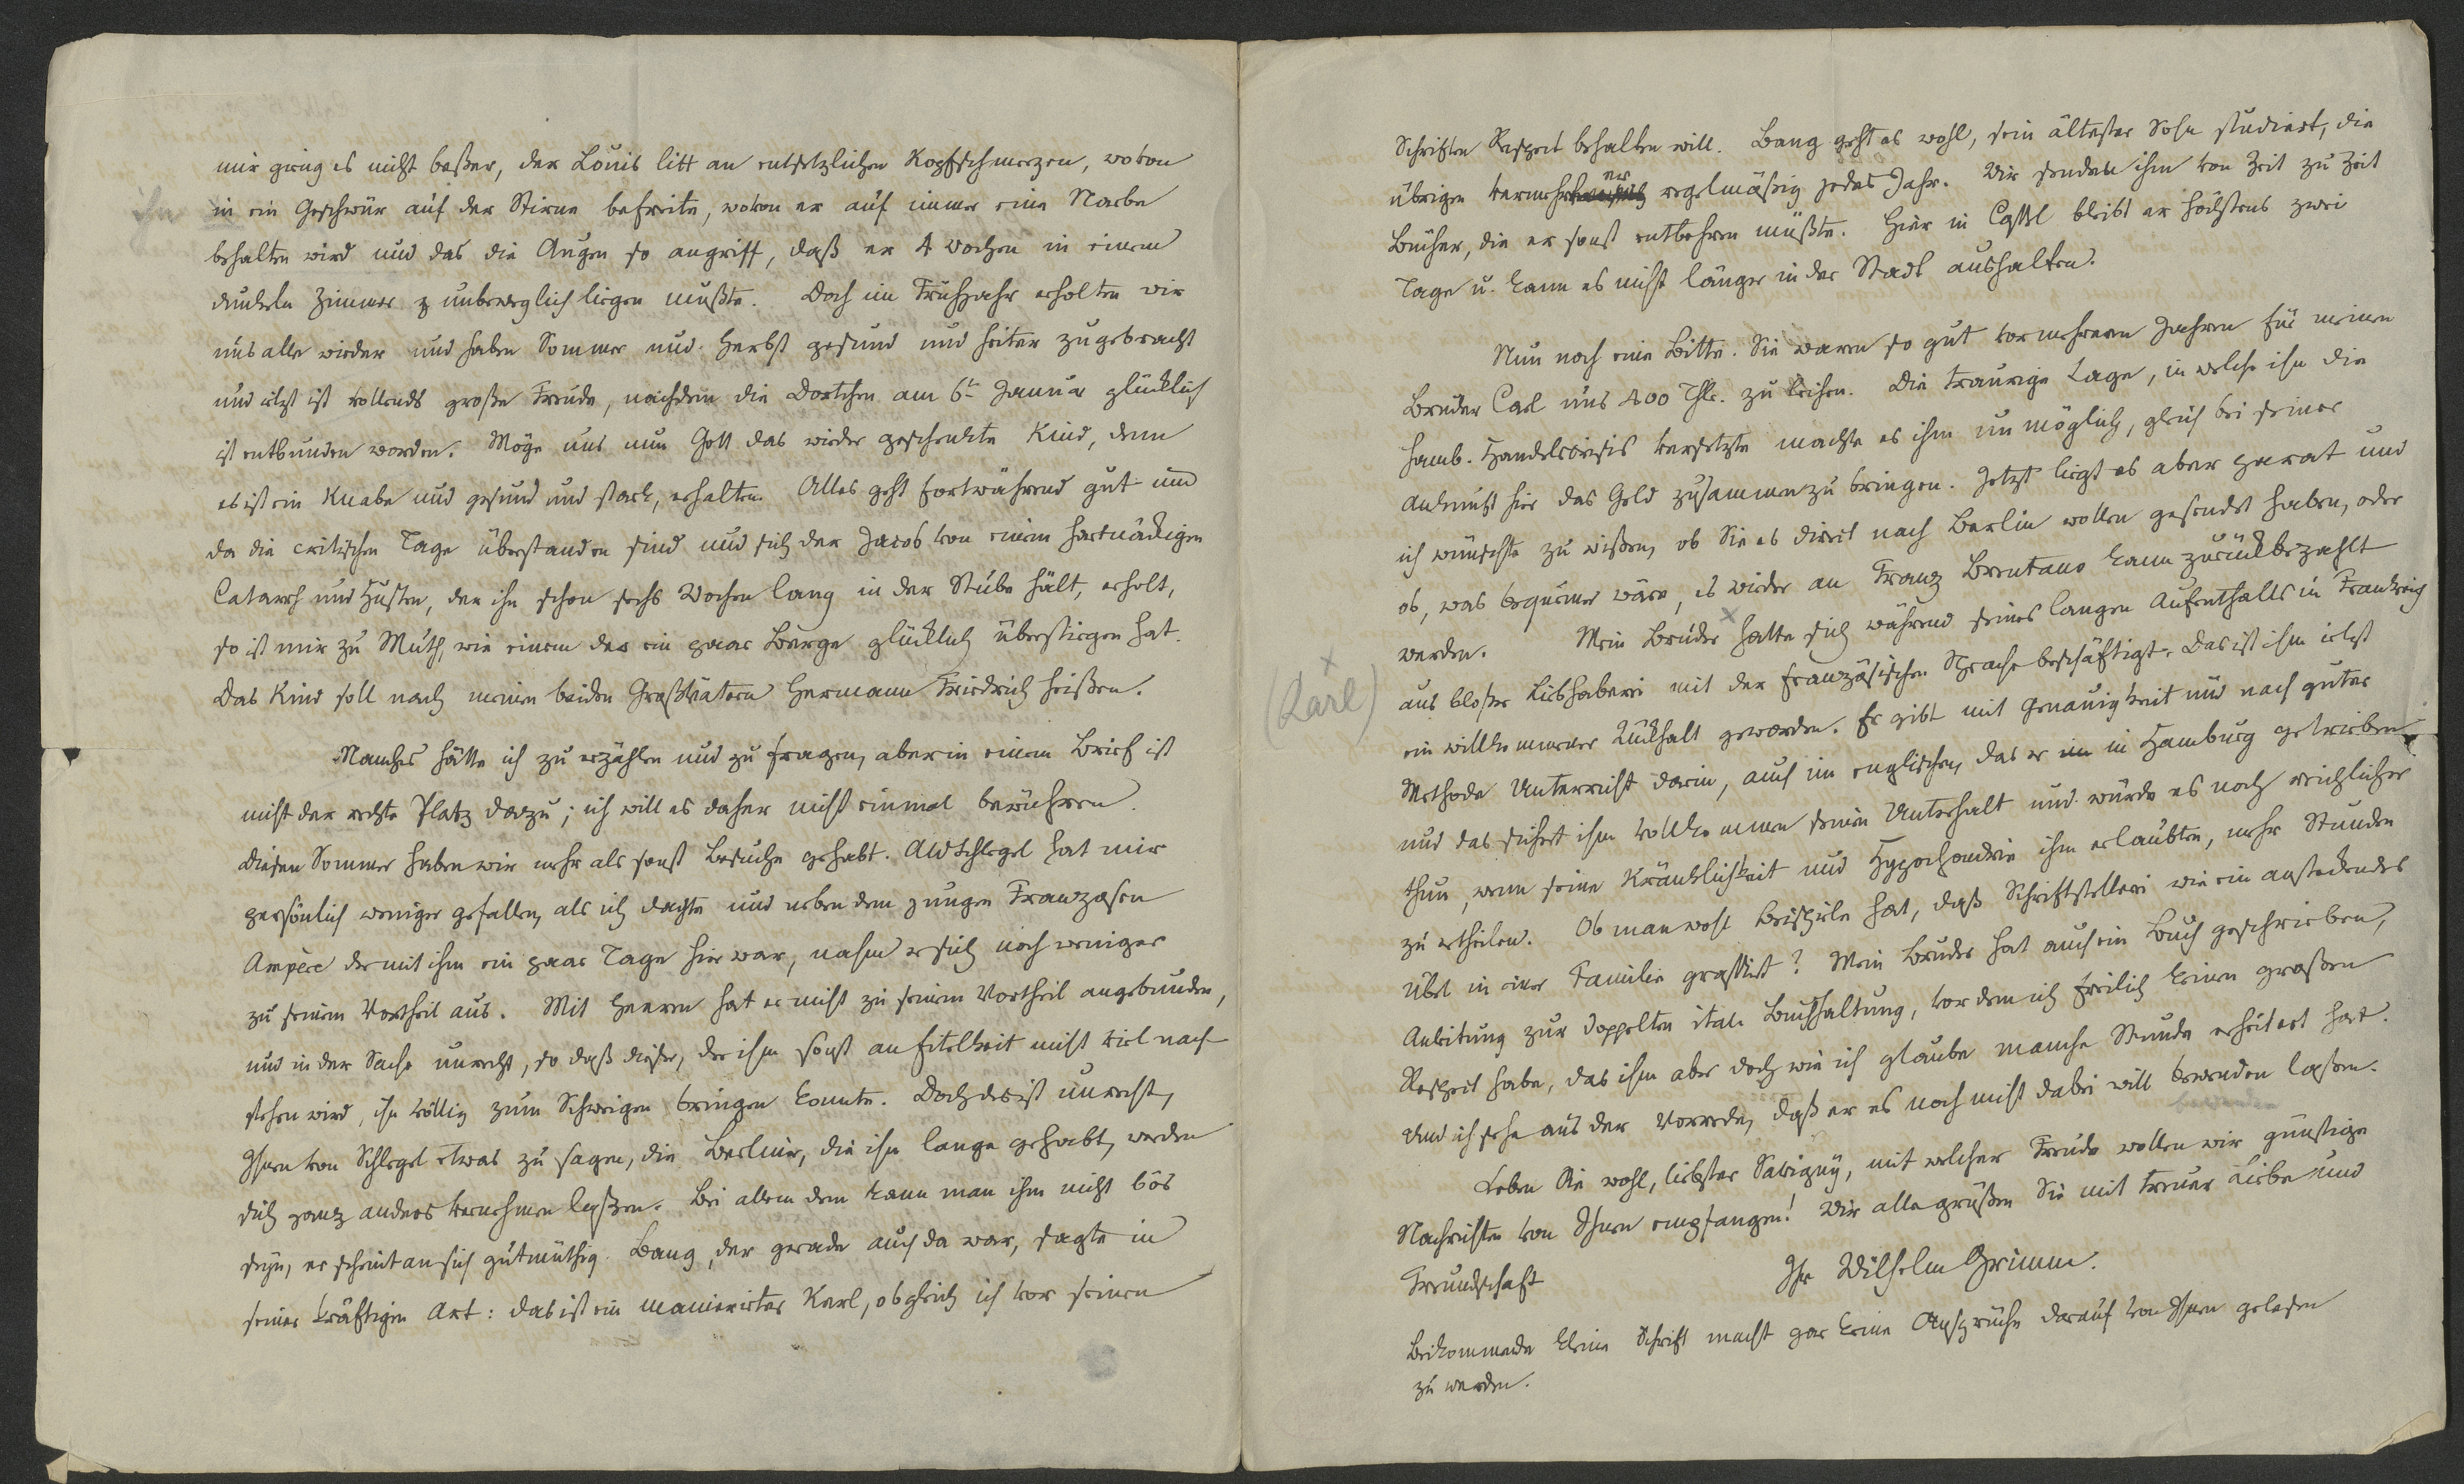 mir ging es nicht beßer, der Louis litt an entsetzlichen Kopfschmerzen, wovon
ihn
in ein Geschwür auf der Stirne befreite, wovon er auf immer eine Narbe
behalten wird und das die Augen so angriff, daß er 4 Wochen in einem
dunkeln Zimmer unbeweglich liegen mußte. Doch im Frühjahr erholten wir
uns alle wieder und haben Sommer und Herbst gesund und heiter zugebracht
und jetzt ist vollends große Freude, nachdem die Dortchen am 6t Januar glücklich
ist entbunden worden. Möge uns nun Gott das wieder geschenkte Kind, denn
es ist ein Knabe und gesund und stark, erhalten. Alles geht fortwährend gut und
da die critischen Tage überstanden sind und sich der Jacob von einem hartnäckigen
Catarrh und Husten, der ihn schon sechs Wochen lang in der Stube hält, erholt,
so ist mir zu Muth, wie einem der ein paar Berge glücklich überstiegen hat.
Das Kind soll nach meinen beiden Großvätern Hermann Friedrich heißen.
Manches hätte ich zu erzählen und zu fragen, aber in einem Brief ist
nicht der rechte Platz dazu; ich will es daher nicht einmal berühren.
Diesen Sommer haben wir mehr als sonst Besuche gehabt. AWSchlegel hat mir
persönlich weniger gefallen, als ich dachte und neben dem jungen Franzosen
Ampère der mit ihm ein paar Tage hier war, nahm er sich noch weniger
zu seinem Vortheil aus. Mit Heeren hat er nicht zu seinem Vortheil angebunden,
und in der Sache unrecht, so daß dieser, der ihm sonst an Eitelkeit nicht viel nach
stehen wird, ihn völlig zum Schweigen bringen konnte. Doch das ist unrecht,
Ihnen von Schlegel etwas zu sagen, die Berliner, die ihn lange gehabt, werden
sich ganz anders vernehmen laßen. Bei allem dem kann man ihm nicht bös
seyn, er scheint an sich gutmüthig. Bang, der gerade auch da war, sagte in
seiner kräftigen Art: das ist ein manierirter Kerl, obgleich ich vor seinen
Schriften Respect behalten will. Bang geht es wohl, sein ältester Sohn studiert, die
er
übrigen vermehren regelmäßig jedes Jahr. Wir senden ihm von Zeit zu Zeit
Bücher, die er sonst entbehren müßte. Hier in Cassel bleibt er höchstens zwei
Tage u. kann es nicht länger in der Stadt aushalten.
Nun noch eine Bitte. Sie waren so gut vor mehreren Jahren für meinen
Bruder Carl uns 400 Thlr. zu leihen. Die traurige Lage, in welche ihn die
Hamb. Handelscrisis versetzte machte es ihm unmöglich, gleich bei seiner
Ankunft hier das Geld zusammenzubringen. Jetzt liegt es aber parat und
ich wünschte zu wißen, ob Sie es direct nach Berlin wollen gesendet haben, oder
ob, was bequemer wäre, es wieder an Franz Brentano kann zurückbezahlt
werden. Mein Bruder hatte sich während seines langen Aufenthalts in Frankreich
(Karl)
aus bloßer Liebhaberei mit der französischen Sprache beschäftigt. Das ist ihm jetzt
ein willkommener Rückhalt geworden. Er gibt mit Genauigkeit und nach guter
Methode Unterricht darin, auch im englischen, das er im in Hamburg getrieben
und das sichert ihm vollkommen seinen Unterhalt und würde es noch reichlicher
thun, wenn seine Kränklichkeit und Hypochondrie ihm erlaubten, mehr Stunden
zu ertheilen. Ob man wohl Beispiele hat, daß Schriftstellerei wie ein ansteckendes
Übel in einer Familie grassiert? Mein Bruder hat auch ein Buch geschrieben,
Anleitung zur doppelten ital. Buchhaltung, vor dem ich freilich keinen großen
Respect habe, das ihm aber doch wie ich glaube manche Stunde erheitert hat.
Und ich sehe aus der Vorrede, daß er es noch nicht dabei will bewenden laßen.
bewenden
Leben Sie wohl, liebster Savigny, mit welcher Freude wollen wir günstige
Nachrichten von Ihnen empfangen! Wir alle grüßen Sie mit treuer Liebe und
Freundschaft
Ihr Wilhelm Grimm.
Beikommende kleine Schrift macht gar keine Ansprüche darauf von Ihnen gelesen
zu werden.